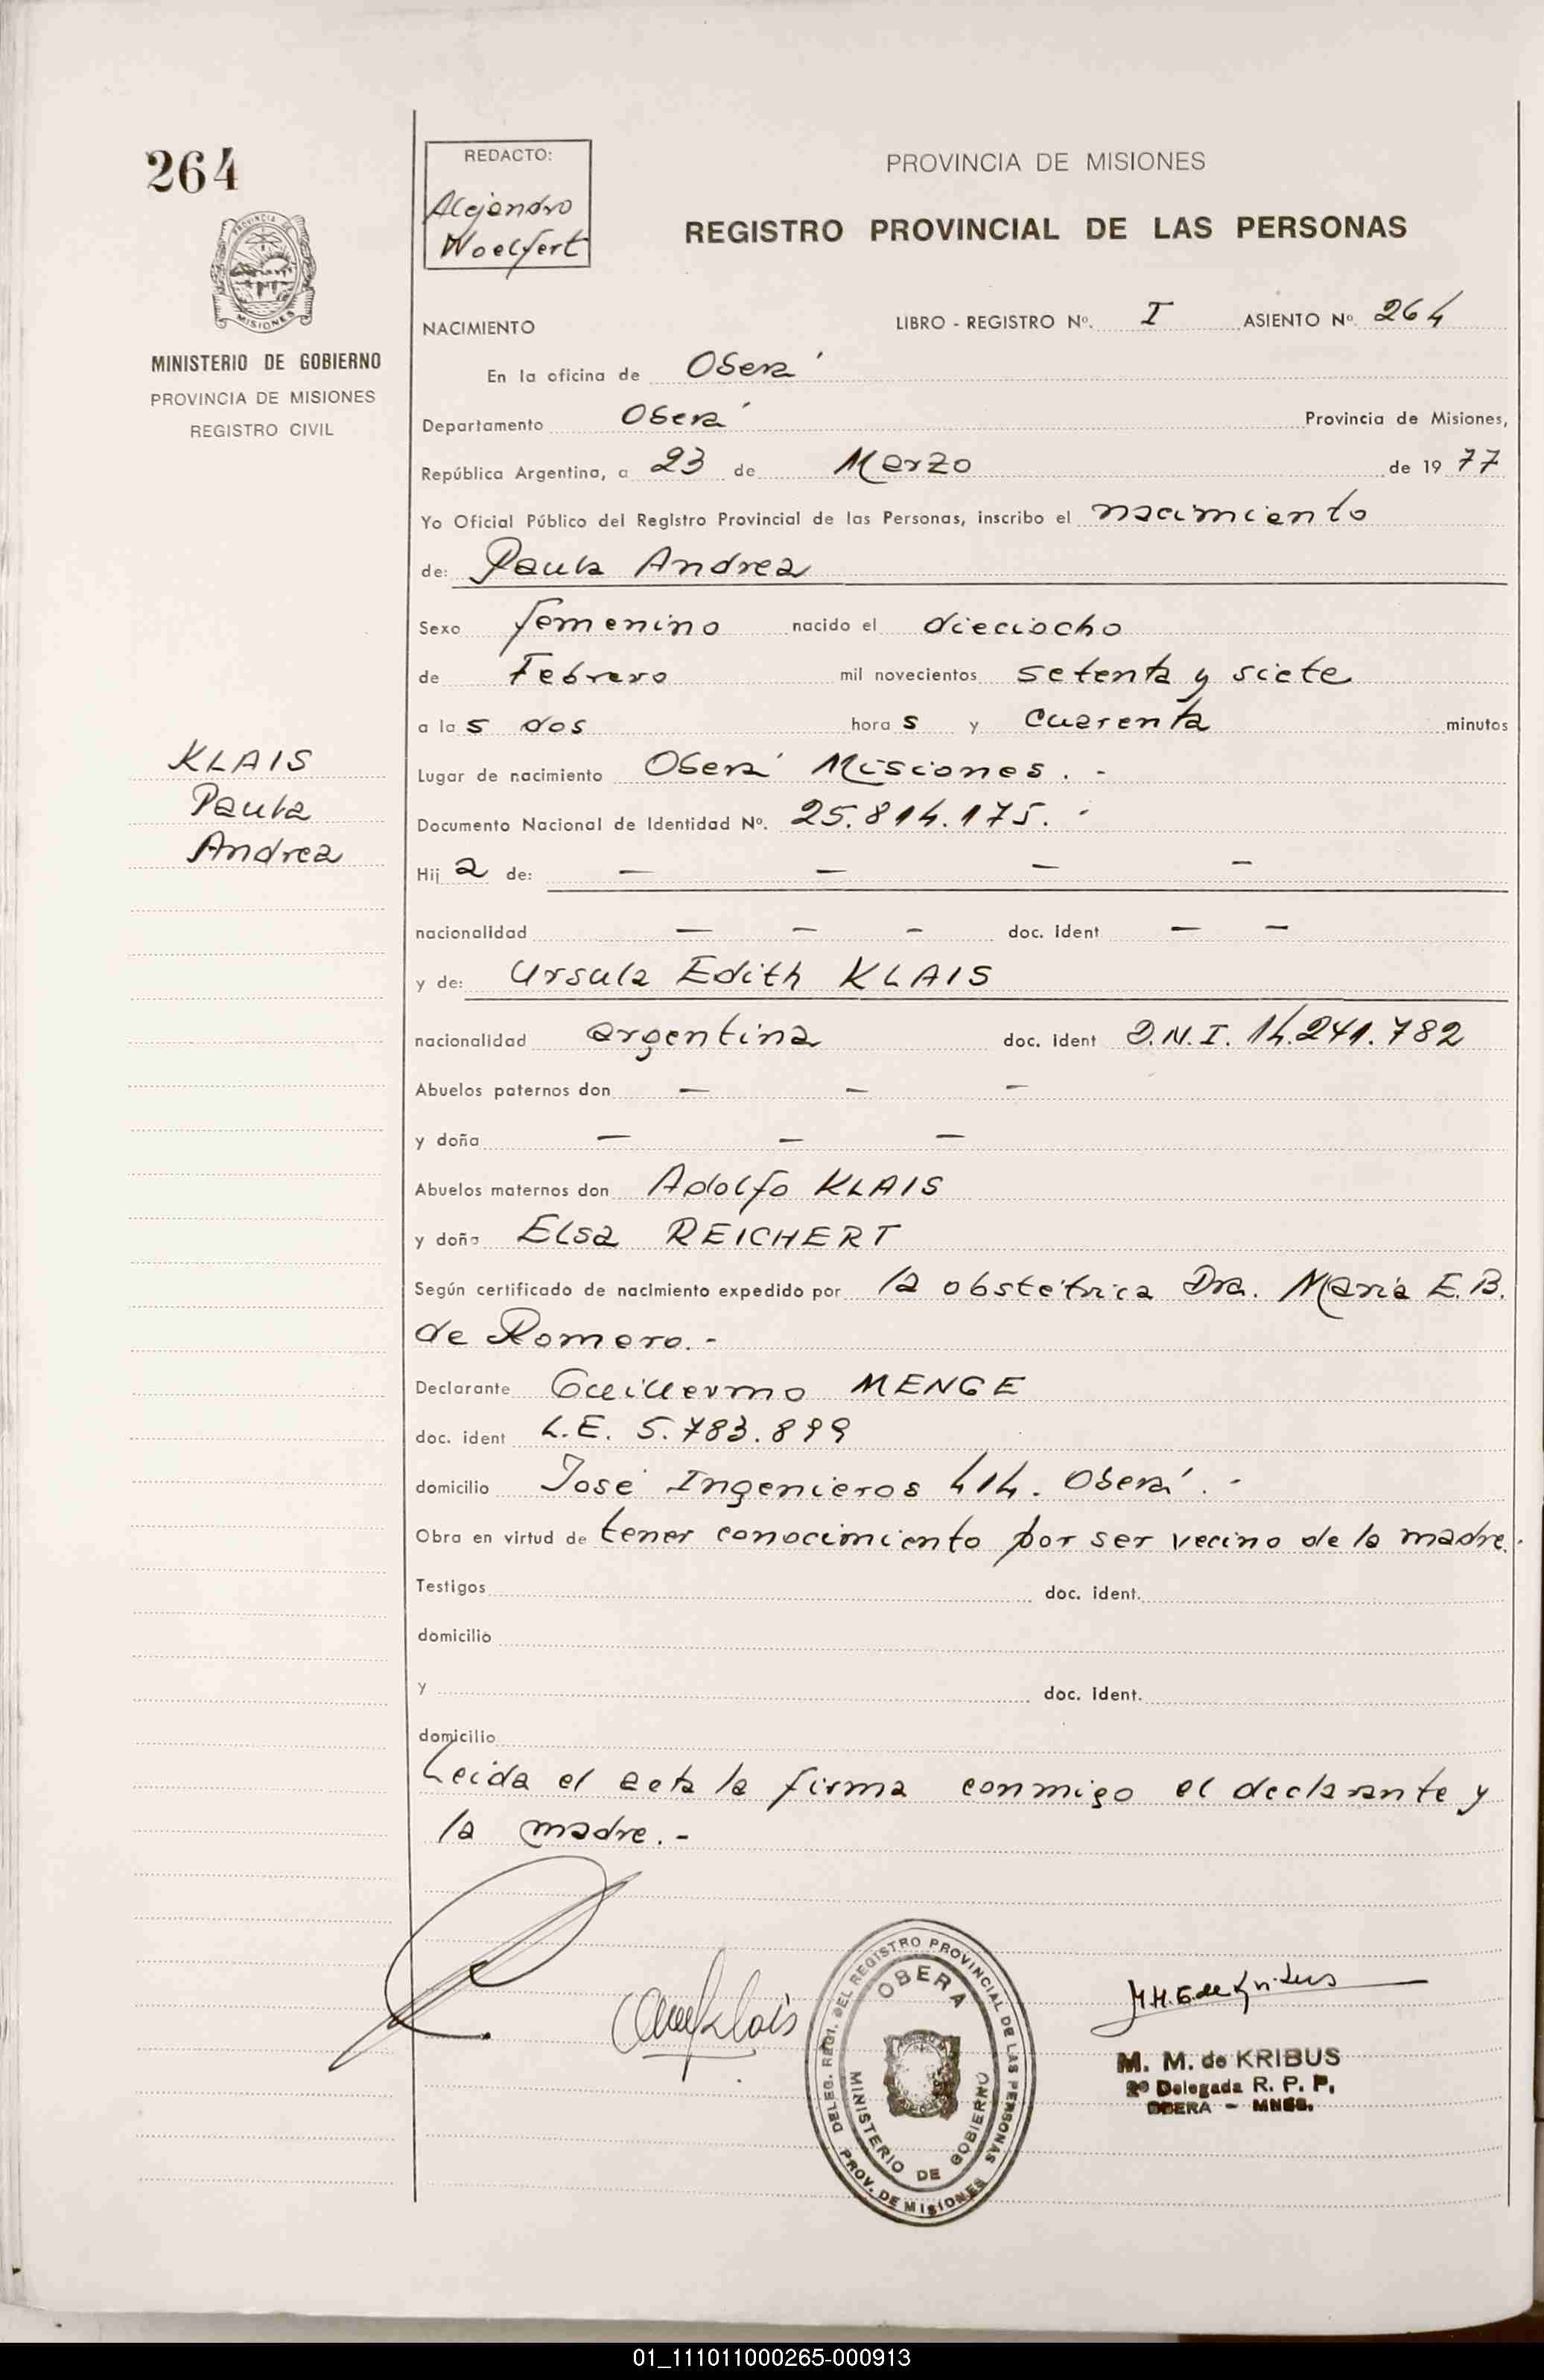 264
PROVINCIA DE
MISIONES
MINISTERIO DE GOBIERNO
PROVINCIA DE MISIONES
REGISTRO CIVIL
KLAIS
Paula
Andrea
REDACTO:
Alejandro
Woelfert
PROVINCIA DE MISIONES
REGISTRO PROVINCIAL DE LAS PERSONAS
NACIMIENTO
LIBRO - REGISTRO Nº. I ASIENTO Nº. 264
En la oficina de Oberá
Departamento Oberá Provincia de Misiones,
República Argentina, a 23 de Marzo de 1977
Yo Oficial Público del Registro Provincial de las Personas, inscribo el nacimiento
de: Paula Andrea
Sexo femenino nacido el dieciocho
de Febrero mil novecientos setenta y siete
a las dos horas y cuarenta minutos
Lugar de nacimiento Oberá Misiones. -
Documento Nacional de Identidad Nº. 25.814.175. -
Hija de: — — — —
nacionalidad — — — doc. ident — —
y de: Ursula Edith KLAIS
nacionalidad argentina doc. ident D.N.I. 14.241.782
Abuelos paternos don — — —
y doña — — —
Abuelos maternos don Adolfo KLAIS
y doña Elsa REICHERT
Según certificado de nacimiento expedido por la obstétrica Dra. María E. B.
de Romero. -
Declarante Guillermo MENGE
doc. ident L.E. 5.783.899
domicilio José Ingenieros 414. Oberá. -
Obra en virtud de tener conocimiento por ser vecino de la madre.
Testigos doc. ident.
domicilio
y doc. ident.
domicilio
Leida el acta la firma conmigo el declarante y
la madre. -
DELEG. REGI. DEL REGISTRO PROVINCIAL DE LAS PERSONAS
PROV. DE MISIONES
OBERA
MINISTERIO DE GOBIERNO
M. M. de KRIBUS
2º Delegada R. P. P.
OBERA - MNES.
01_111011000265-000913